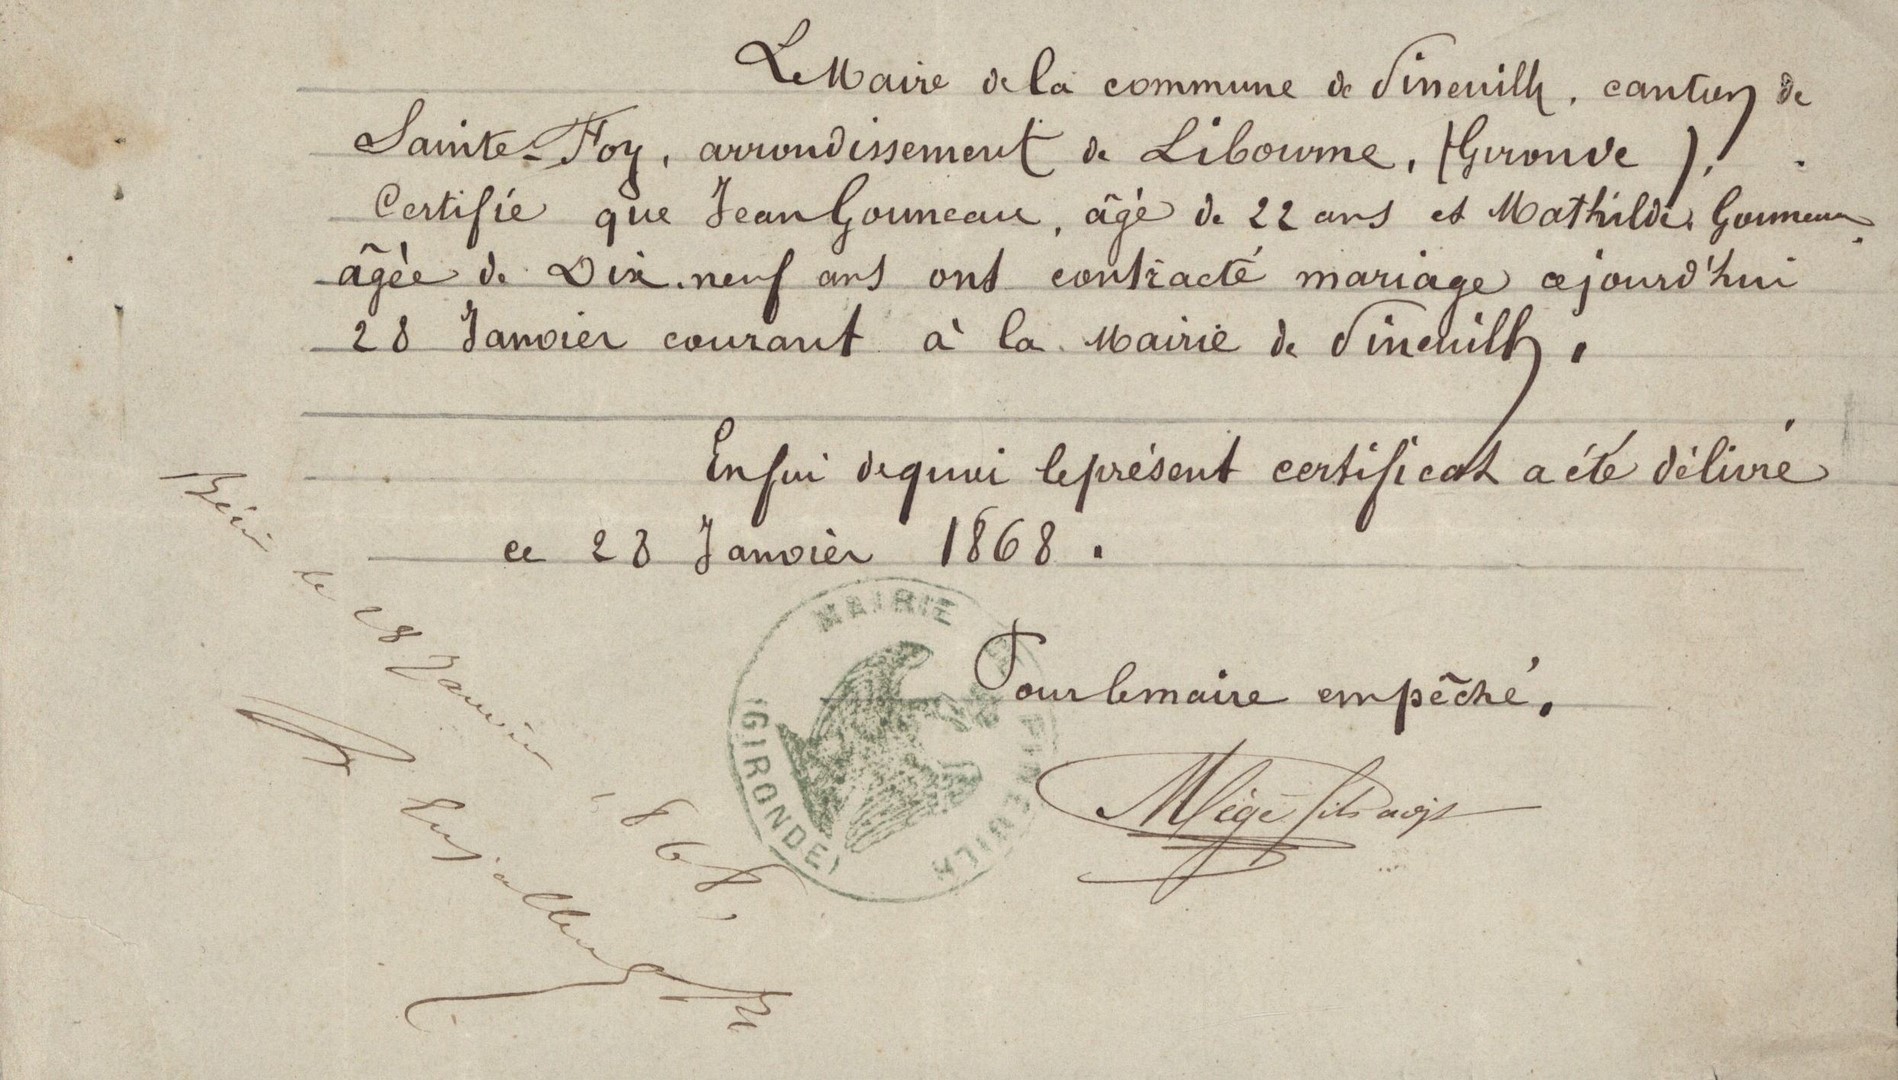 Le Maire de la commune de Pineuilh, canton de
Sainte-Foy, arrondissement de Libourne, (Gironde),
Certifie que Jean Gouneau, âgé de 22 ans et Mathilde Gouneau
âgée de Dix-neuf ans ont contracté mariage cejourd'hui
28 Janvier courant à la Mairie de Pineuilh.
En foi de quoi le présent certificat a été délivré
ce 28 Janvier 1868.
Pour le maire empêché.
Mège fils adjt
MAIRIE DE PINEUILH
(GIRONDE)
Béni le 28 Janvier 1868.